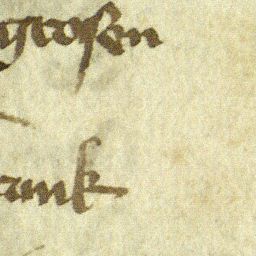 grosen
rank